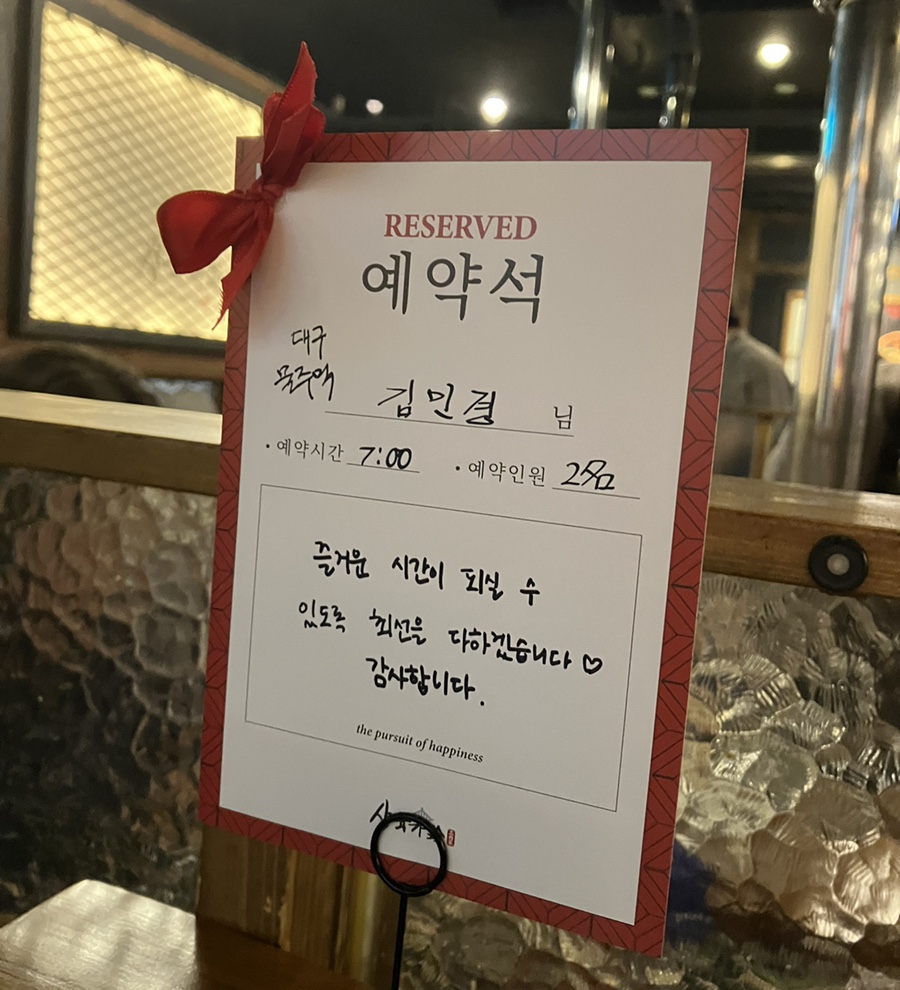 RESERVED
예약석
대구
김민경 님
• 예약시간 7:00 • 예약인원 2名
즐거운 시간이 되실 수
있도록 최선을 다하겠습니다 ♡
감사합니다.
the pursuit of happiness